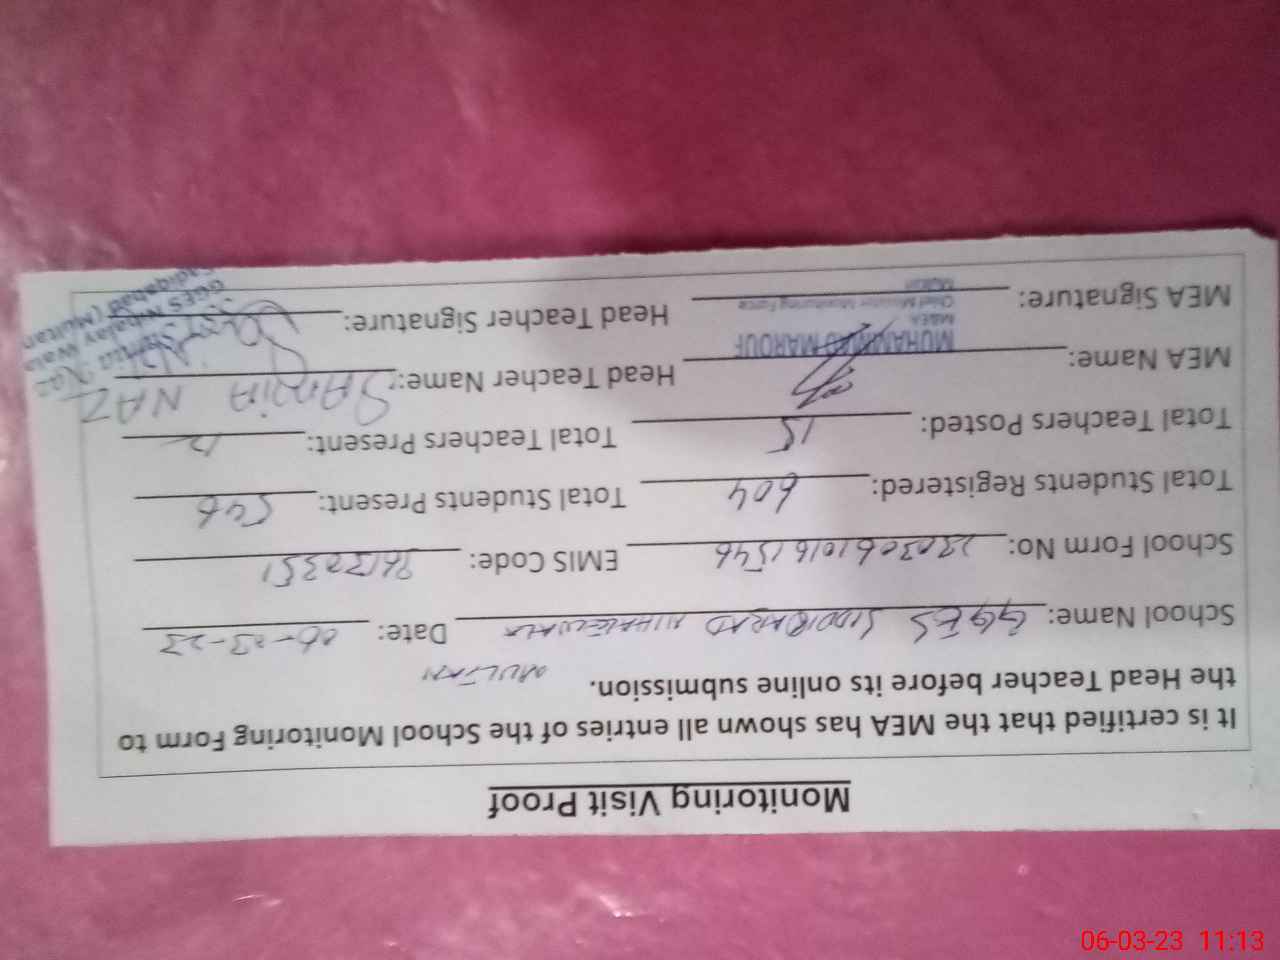 Monitoring Visit Proof
It is certified that the MEA has shown all entries of the School Monitoring Form to
the Head Teacher before its online submission.
MULTAN
School Name: GGES SIDDIQABAD NIHALEWALA Date: 06-03-23
School Form No: 23030610161546 EMIS Code: 36130351
Total Students Registered: 604 Total Students Present: 546
Total Teachers Posted: 15 Total Teachers Present: 12
MEA Name: MUHAMMAD MAROUF Head Teacher Name: SAADIA NAZ
MEA
Chief Minister Monitoring Force
Multan
MEA Signature: Head Teacher Signature:
Sadia Naz
GGES Nihalay Wala
Sadiqabad (Multan
06-03-23 11:13